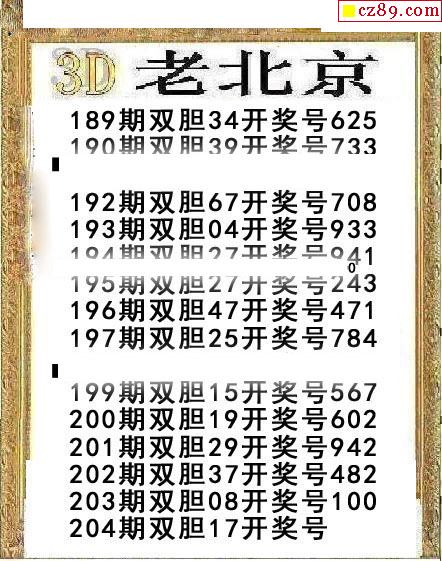 cz89.com
3D 老北京
189期双胆34开奖号625
190期双胆39开奖号733
192期双胆67开奖号708
193期双胆04开奖号933
194期双胆27开奖号941
0
195期双胆27开奖号243
196期双胆47开奖号471
197期双胆25开奖号784
199期双胆15开奖号567
200期双胆19开奖号602
201期双胆29开奖号942
202期双胆37开奖号482
203期双胆08开奖号100
204期双胆17开奖号